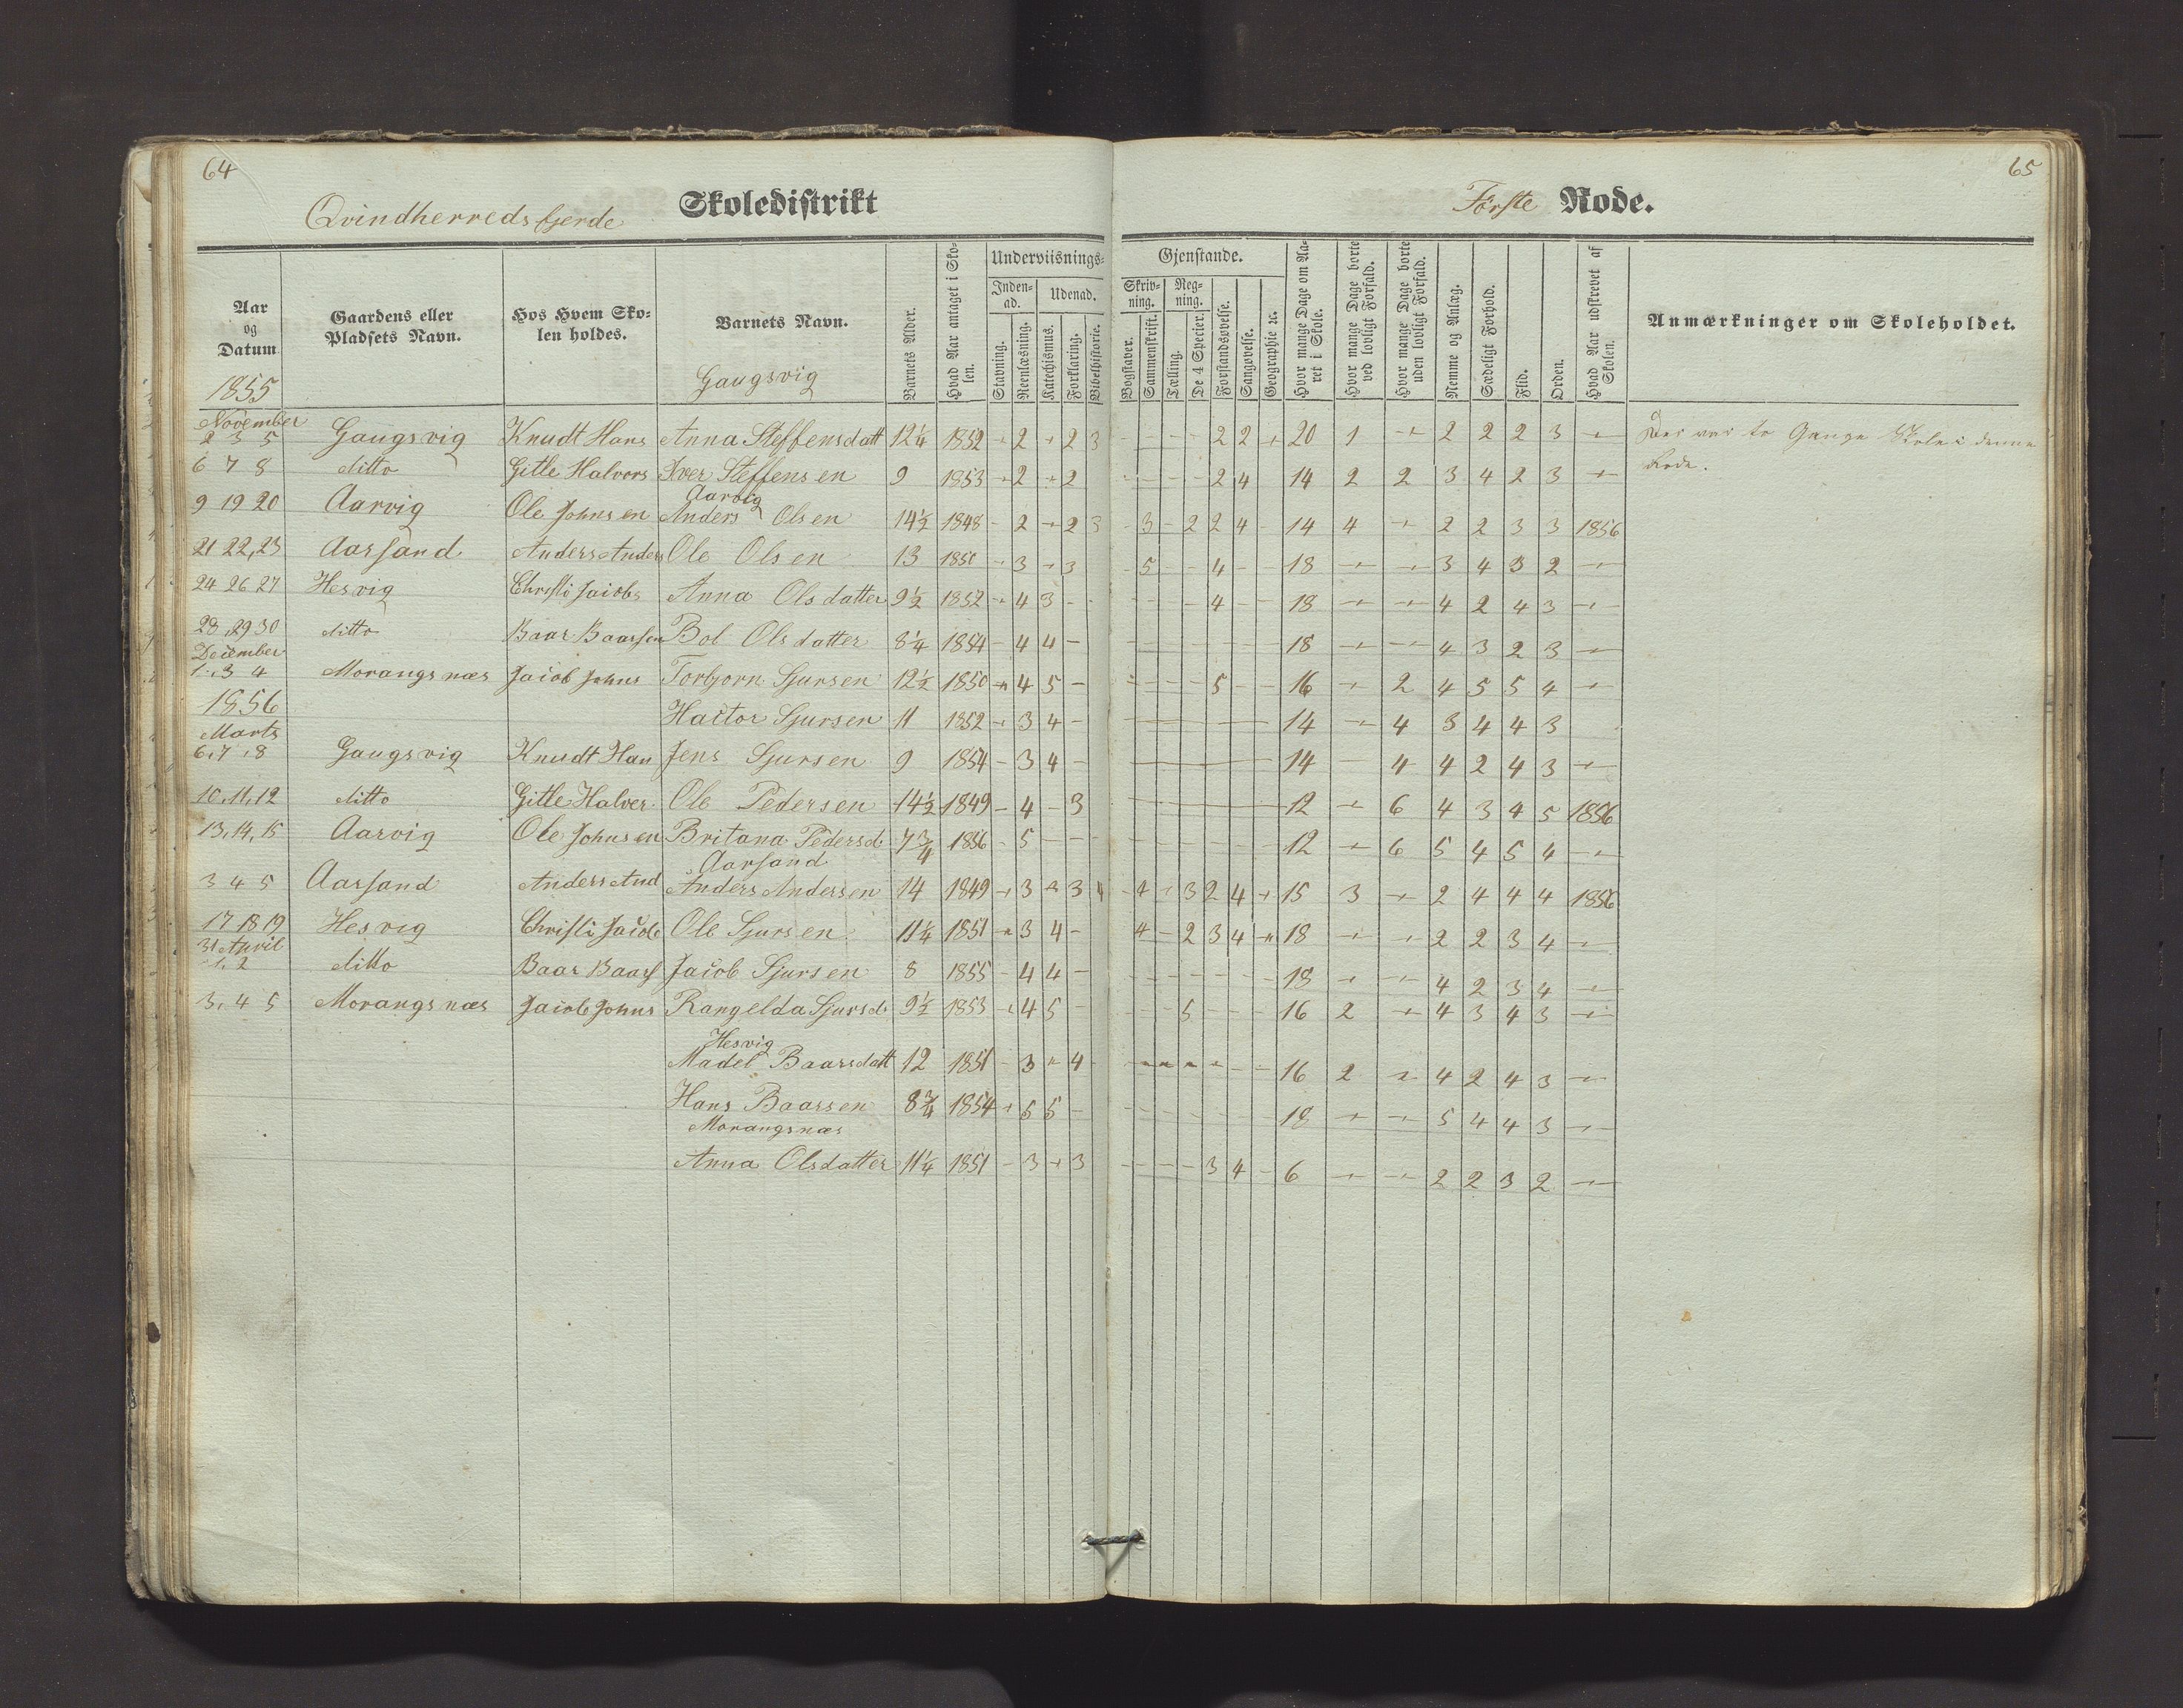 64
65
Qvindherreds fjerde Skoledistrikt
Første Rode.
Aar og Datum
Gaardens eller Pladsets Navn.
Hos Hvem Skolen holdes.
Barnets Navn.
Barnets Alder.
Hvad Aar antaget i Skolen.
Underviisnings-Gjenstande.
Indenad.
Udenad.
Skrivning.
Regning.
Stavning.
Reenlæsning.
Katechismus.
Forklaring.
Bibelhistorie.
Bogstaver.
Sammenskrift.
Tælling.
De 4 Specier.
Forstandsøvelse.
Sangøvelse.
Geographie ꝛc.
Hvor mange Dage om Aaret i Skole.
Hvor mange Dage borte ved lovligt Forfald.
Hvor mange Dage borte uden lovligt Forfald.
Nemme og Anlæg.
Sædeligt Forhold.
Flid.
Orden.
Hvad Aar udskrevet af Skolen.
Anmærkninger om Skoleholdet.
1855
Gaugsvig
November
2 3 5 Gaugsvig Knudt Hans Anna Steffensdatt 12¼ 1852 - 2 - 2 3 - - - - 2 2 - 20 1 - 2 2 2 3 - Der var to Gange Skole i denne
6 7 8 ditto Gitle Halvors Iver Steffensen 9 1853 - 2 - 2 - - - - 2 4 14 2 2 3 4 2 3 - Rode.
Aarvig
9 19 20 Aarvig Ole Johnsen Anders Olsen 14½ 1848 - 2 - 2 3 - 3 - 2 2 4 - 14 4 - 2 2 3 3 1856
21 22,23 Aarsand Anders Anders Ole Olsen 13 1850 - 3 - 3 - 5 - - 4 - - 18 - - 3 4 3 2 -
24 26 27 Hesvig Christi Jacobs Anna Olsdatter 9½ 1852 - 4 3 - - - 4 - - 18 - - 4 2 4 3 -
28,29 30 ditto Baar Baarsen Bol Olsdatter 8¼ 1854 - 4 4 - - - - - - - - 18 - - 4 3 2 3 -
December
1,3 4 Morangsnæs Jacob Johns Torbjørn Sjursen 12½ 1850 - 4 5 - - - - - 5 - - 16 - 2 4 5 5 4 -
1856
Hactor Sjursen 11 1852 - 3 4 - - - - - - 14 - 4 3 4 4 3
Marts
6,7,8 Gaugsvig Knudt Han Jens Sjursen 9 1854 - 3 4 - - - - - - 14 - 4 4 2 4 3 -
10,11,12 ditto Gitle Halver Ole Pedersen 14½ 1849 - 4 - 3 - - - - - 12 - 6 4 3 4 5 1856
13,14,15 Aarvig Ole Johnsen Britana Pedersd 7¾ 1856 - 5 - - - - - - - - - 12 - 6 5 4 5 4 -
Aarsand
3 4 5 Aarsand Anders And Anders Andersen 14 1849 - 3 - 3 4 - 4 - 3 2 4 - 15 3 - 2 4 4 4 1856
17 18 19 Hesvig Christi Jacob Ole Sjursen 11¼ 1851 - 3 4 - 4 - 2 3 4 - 18 - - 2 2 3 4 -
31 April
1,2 ditto Baar Baars Jacob Sjursen 8 1855 - 4 4 - - - - - - - - 18 - - 4 2 3 4 -
3,4 5 Morangsnæs Jacob Johns Rangelda Sjursd 9½ 1853 - 4 5 - - - - 5 - - - 16 2 - 4 3 4 3 -
Hesvig
Madel Baarsdatt 12 1851 - 3 - 4 - - - - - - - 16 2 - 4 2 4 3 -
Hans Baarsen 8¾ 1854 - 5 5 - - - - - - - - 18 - - 5 4 4 3 -
Morangsnæs
Anna Olsdatter 11¼ 1851 - 3 - 3 - - - - 3 4 - 6 - - 2 2 3 2 -